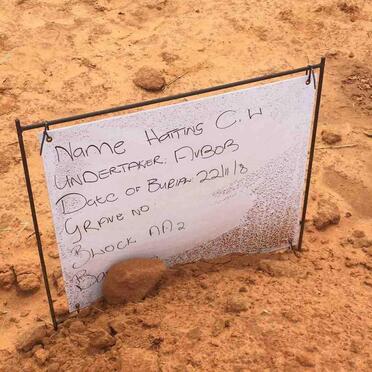 Name Hatting C.W
UNDERTAKER: AVBOB
Date of Burial 22/11/8
GRAVE NO
BLOCK AA2